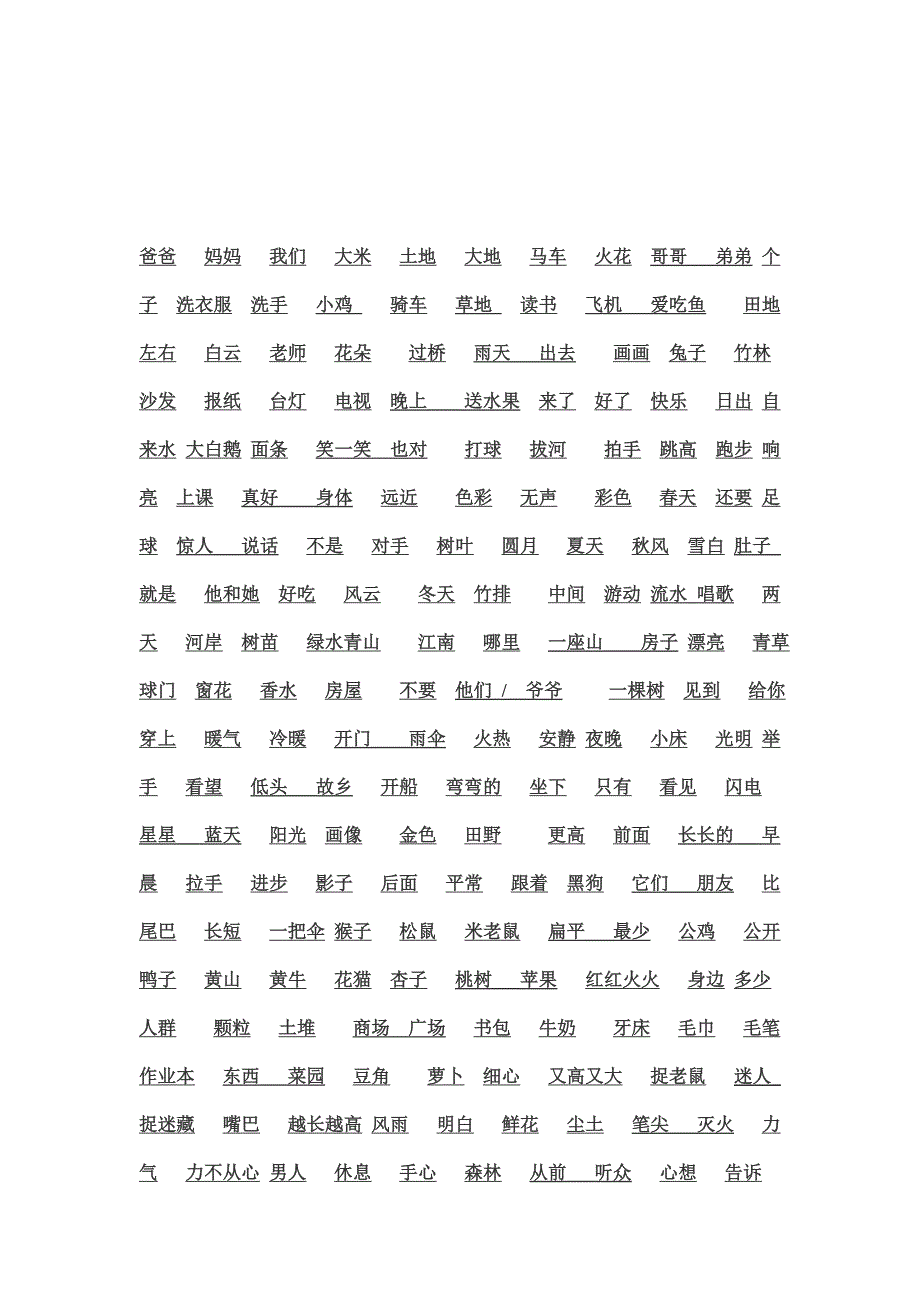 爸爸 妈妈 我们 大米 土地 大地 马车 火花 哥哥 弟弟 个
子 洗衣服 洗手 小鸡 骑车 草地 读书 飞机 爱吃鱼 田地
左右 白云 老师 花朵 过桥 雨天 出去 画画 兔子 竹林
沙发 报纸 台灯 电视 晚上 送水果 来了 好了 快乐 日出 自
来水 大白鹅 面条 笑一笑 也对 打球 拔河 拍手 跳高 跑步 响
亮 上课 真好 身体 远近 色彩 无声 彩色 春天 还要 足
球 惊人 说话 不是 对手 树叶 圆月 夏天 秋风 雪白 肚子
就是 他和她 好吃 风云 冬天 竹排 中间 游动 流水 唱歌 两
天 河岸 树苗 绿水青山 江南 哪里 一座山 房子 漂亮 青草
球门 窗花 香水 房屋 不要 他们 / 爷爷 一棵树 见到 给你
穿上 暖气 冷暖 开门 雨伞 火热 安静 夜晚 小床 光明 举
手 看望 低头 故乡 开船 弯弯的 坐下 只有 看见 闪电
星星 蓝天 阳光 画像 金色 田野 更高 前面 长长的 早
晨 拉手 进步 影子 后面 平常 跟着 黑狗 它们 朋友 比
尾巴 长短 一把伞 猴子 松鼠 米老鼠 扁平 最少 公鸡 公开
鸭子 黄山 黄牛 花猫 杏子 桃树 苹果 红红火火 身边 多少
人群 颗粒 土堆 商场 广场 书包 牛奶 牙床 毛巾 毛笔
作业本 东西 菜园 豆角 萝卜 细心 又高又大 捉老鼠 迷人
捉迷藏 嘴巴 越长越高 风雨 明白 鲜花 尘土 笔尖 灭火 力
气 力不从心 男人 休息 手心 森林 从前 听众 心想 告诉